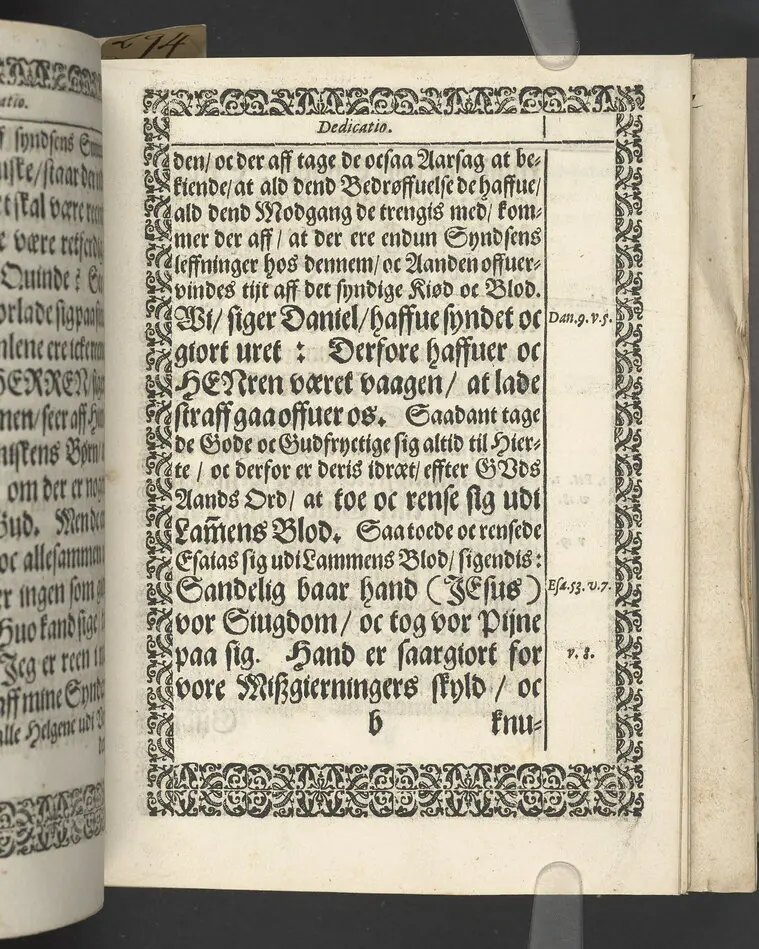 274
atio.
syndsens
niske/staar
t skal være
e være retferdi
Quinde:
orlade sig paa
nlene ere icke
HERREN/
men/seer aff
niskens Børn/
om der er nog
Gud. Men
oc allesammen
er ingen som
Huo kand sige
Jeg er reen
aff mine Synd
alle Helgene udi
Dedicatio.
den/ oc der aff tage de ocsaa Aarsag at be-
kiende/ at ald dend Bedrøffuelse de haffue/
ald dend Modgang de trengis med/ kom-
mer der aff/ at der ere endun Syndsens
leffninger hos dennem/ oc Aanden offuer-
vindes tijt aff det syndige Kiød oc Blod.
Vi/ siger Daniel/ haffue syndet oc
Dan.9.v.5.
giort uret : Derfore haffuer oc
HENren været vaagen/ at lade
straff gaa offuer os. Saadant tage
de Gode oc Gudfryctige sig altid til Hier-
te/ oc derfor er deris idræt/ effter GVds
Aands Ord/ at toe oc rense sig udi
Lam̃ens Blod. Saa toede oc rensede
Esaias sig udi Lammens Blod/ sigendis:
Sandelig baar hand (JEsus)
Esa.53.v.7.
vor Siugdom/ oc tog vor Pijne
paa sig. Hand er saargiort for
v. 8.
vore Mißgierningers skyld/ oc
b knu-